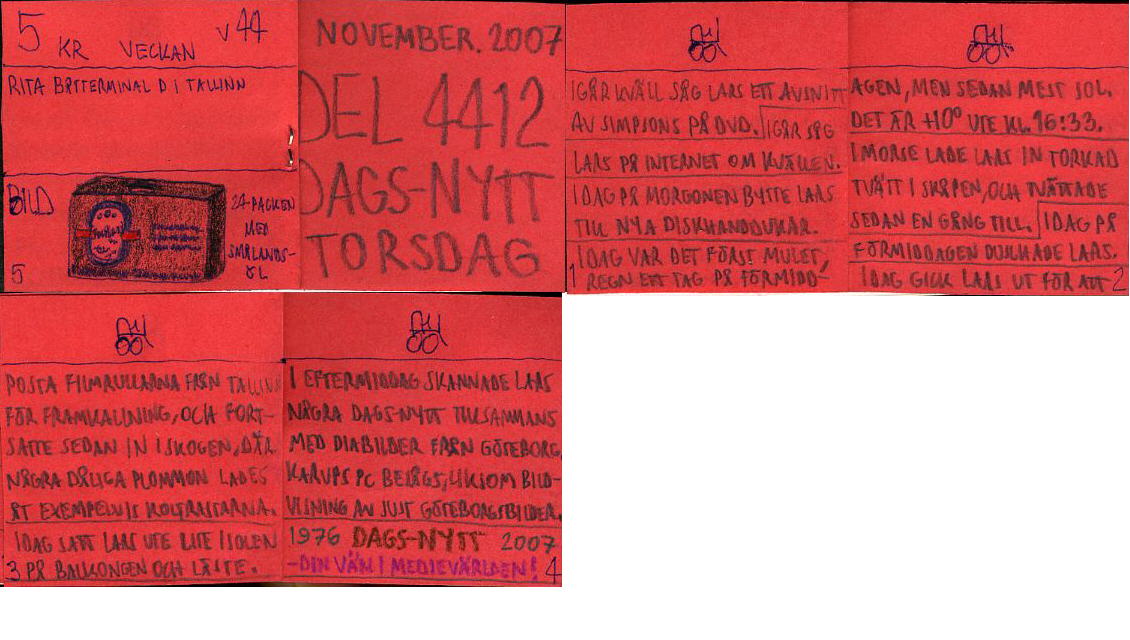 5 KR VECKAN V44
RITA BÅTTERMINAL D I TALLINN
BILD
24-PACKEN
MED
SMÅLANDS-
ÖL
5
NOVEMBER. 2007
DEL 4412
DAGS-NYTT
TORSDAG
IGÅR KVÄLL SÅG LARS ETT AVSNITT
AV SIMPSONS PÅ DVD. IGÅR SÅG
LARS PÅ INTERNET OM KVÄLLEN.
IDAG PÅ MORGONEN BYTTE LARS
TILL NYA DISKHANDDUKAR.
IDAG VAR DET FÖRST MULET,
1 REGN ETT TAG PÅ FÖRMIDD-
AGEN, MEN SEDAN MEST SOL.
DET ÄR +10° UTE KL. 16:33.
I MORSE LADE LARS IN TORKAD
TVÄTT I SKÅPEN, OCH TVÄTTADE
SEDAN EN GÅNG TILL. IDAG PÅ
FÖRMIDDAGEN DUSCHADE LARS.
IDAG GICK LARS UT FÖR ATT 2
POSTA FILMRULLARNA FRÅN TALLINN
FÖR FRAMKALLNING, OCH FORT-
SATTE SEDAN IN I SKOGEN, DÄR
NÅGRA DÅLIGA PLOMMON LADES
ÅT EXEMPELVIS KOLTRASTARNA.
IDAG SATT LARS UTE LITE I SOLEN
3 PÅ BALKONGEN OCH LÄSTE.
I EFTERMIDDAG SKANNADE LARS
NÅGRA DAGS-NYTT TILLSAMMANS
MED DIABILDER FRÅN GÖTEBORG.
KARUPS PC BESÅGS, LIKSOM BILD-
VISNING AV JUST GÖTEBORGSBILDER.
1976 DAGS-NYTT 2007
-DIN VÄN I MEDIEVÄRLDEN! 4